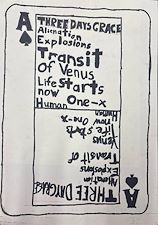 A
THREE DAYS GRACE
Alienation
Explosions
Transit
Of Venus
Life Starts
now One-X
Human
Human
now One-X
Life Starts
Venus
Transit of
Explosions
Alienation
THREE DAYS GRACE
A